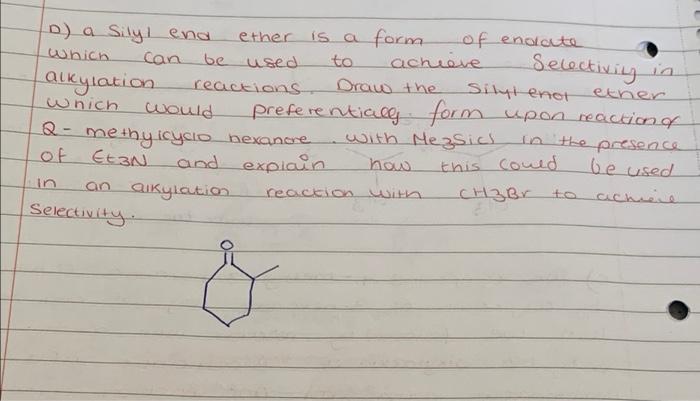 D) a silyl enol ether is a form of enolate
which can be used to achieve Selectiviy in
alkylation reactions. Draw the silyl enol ether
which would preferentially form upon reaction of
2-methylcyclo hexanone. with Me3SiCl in the presence
of Et3N and explain how this could be used
in an alkylation reaction with CH3Br to achieve
Selectivity.
O